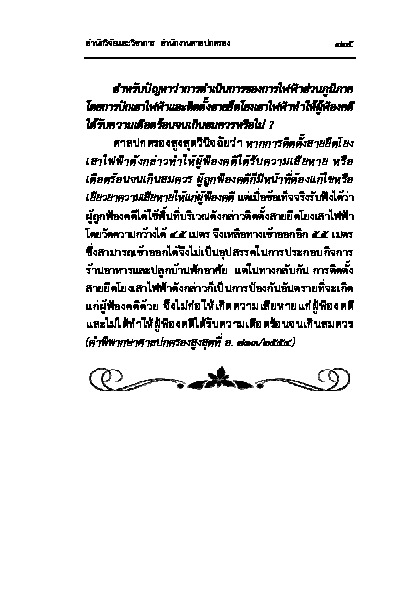 สำนักวิจัยและวิชาการ สำนักงานศาลปกครอง ๑๒๕
สำหรับปัญหาว่าการดำเนินการของการไฟฟ้าส่วนภูมิภาค
โดยการปักเสาไฟฟ้าและติดตั้งสายยึดโยงเสาไฟฟ้าทำให้ผู้ฟ้องคดี
ได้รับความเดือดร้อนจนเกินสมควรหรือไม่ ?
ศาลปกครองสูงสุดวินิจฉัยว่า หากการติดตั้งสายยึดโยง
เสาไฟฟ้าดังกล่าวทำให้ผู้ฟ้องคดีได้รับความเสียหาย หรือ
เดือดร้อนจนเกินสมควร ผู้ถูกฟ้องคดีก็มีหน้าที่ต้องแก้ไขหรือ
เยียวยาความเสียหายให้แก่ผู้ฟ้องคดี แต่เมื่อข้อเท็จจริงรับฟังได้ว่า
ผู้ถูกฟ้องคดีได้ใช้พื้นที่บริเวณดังกล่าวติดตั้งสายยึดโยงเสาไฟฟ้า
โดยวัดความกว้างได้ ๔.๕ เมตร จึงเหลือทางเข้าออกอีก ๕.๕ เมตร
ซึ่งสามารถเข้าออกได้จึงไม่เป็นอุปสรรคในการประกอบกิจการ
ร้านอาหารและปลูกบ้านพักอาศัย แต่ในทางกลับกัน การติดตั้ง
สายยึดโยงเสาไฟฟ้าดังกล่าวก็เป็นการป้องกันอันตรายที่จะเกิด
แก่ผู้ฟ้องคดีด้วย จึงไม่ก่อให้เกิดความเสียหายแก่ผู้ฟ้องคดี
และไม่ได้ทำให้ผู้ฟ้องคดีได้รับความเดือดร้อนจนเกินสมควร
(คำพิพากษาศาลปกครองสูงสุดที่ อ. /๒๕๕๔)